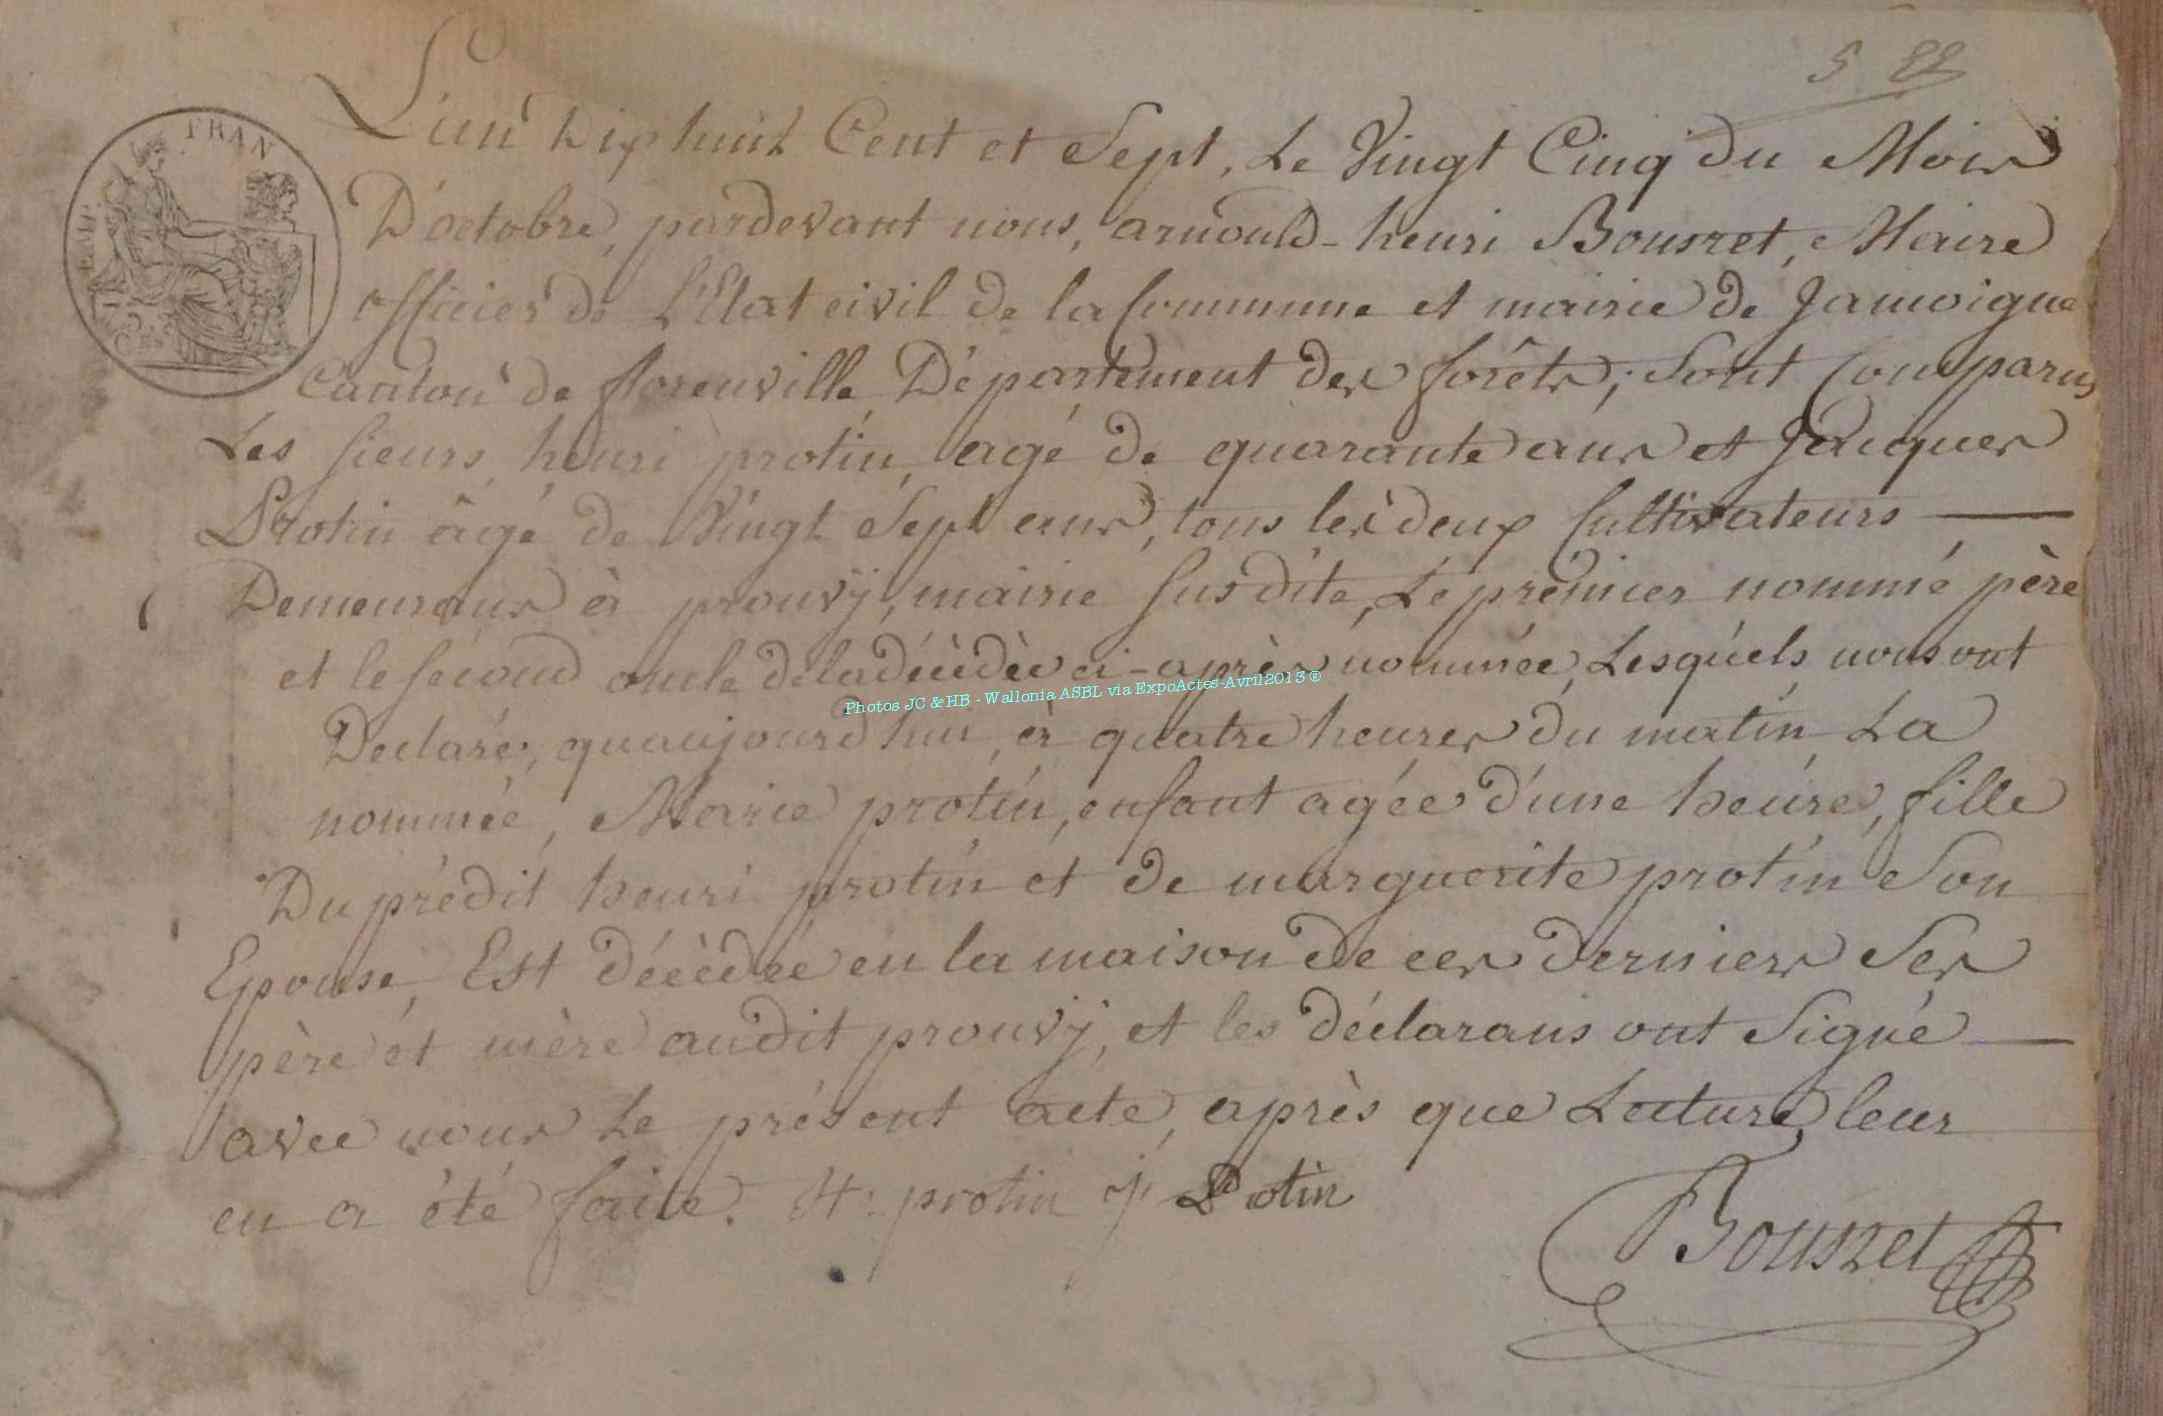 5 22
L'an dix huit Cent et Sept, Le Vingt Cinq du Mois
FRAN
D'octobre, pardevant nous, arnould-henri Bousret, Maire
officier de L'Etat civil de la Commune et mairie de Jamoigne
Canton de florenville Département des forêts; sont Comparus
Les sieurs henri protin, agé de quarante ans et Jacques
Protin âgé de Vingt Sept ans, tous les deux Cultivateurs
Demeurans à prouvÿ, mairie susdite, Le premier nommé père
et le second oncle de la décèdèe ci-après nommée, Lesquels nous ont
Photos JC & HB - Wallonia ASBL via ExpoActes-Avril2013 ®
Declaré, quaujourd'hui, à quatre heures du matin La
nommée, Marie protin, enfant agée d'une heure, fille
Du prédit henri protin et de marguerite protin Son
Epouse, Est décèdée en la maison de ces derniers Ses
père et mère audit prouvÿ, et les déclarans ont Signé
avec nous Le présent acte, après que Lecture leur
en a été faite. H: protin J Protin
Bousret